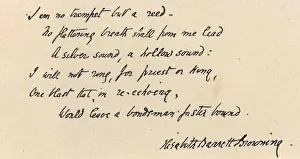 I am no trumpet but a reed—
No flattering breath shall from me lead
A silver sound, a hollow sound:
I will not ring, for priest or king,
One blast that, in re-echoing,
Would leave a bondsman faster bound.
Elizabeth Barrett Browning